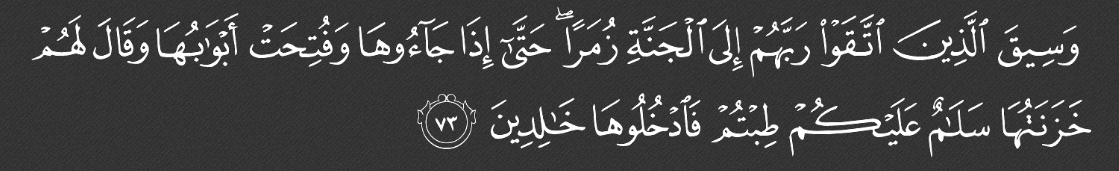 وَسِيقَ ٱلَّذِينَ ٱتَّقَوْا۟ رَبَّهُمْ إِلَى ٱلْجَنَّةِ زُمَرًا ۖ حَتَّىٰٓ إِذَا جَآءُوهَا وَفُتِحَتْ أَبْوَٰبُهَا وَقَالَ لَهُمْ
خَزَنَتُهَا سَلَـٰمٌ عَلَيْكُمْ طِبْتُمْ فَٱدْخُلُوهَا خَـٰلِدِينَ ٧٣